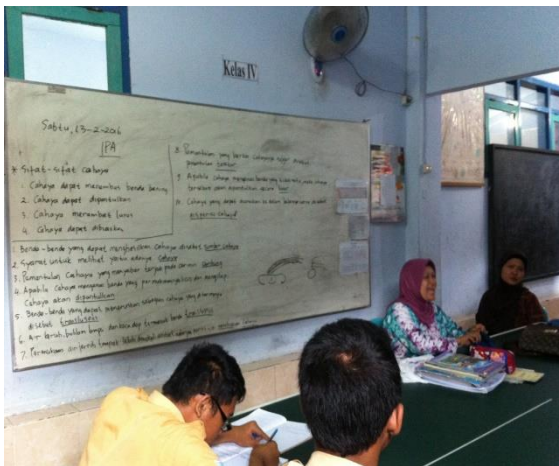 Kelas IV
Sabtu, 13-2-2016
IPA
* Sifat-sifat cahaya
1. Cahaya dapat menembus benda bening
2. Cahaya dapat dipantulkan
3. Cahaya merambat lurus
4. Cahaya dapat dibiaskan
1. Benda-benda yang dapat menghasilkan cahaya disebut sumber cahaya
2. Syarat untuk melihat yaitu adanya cahaya
3. Pemantulan cahaya yang menyebar terjadi pada cermin cembung
4. Apabila cahaya mengenai benda yang permukaannya licin dan mengkilap,
Cahaya akan dipantulkan
5. Benda-benda yang dapat meneruskan sebagian cahaya yang diterimanya
disebut
6. Air keruh, bohlam lampu dan kaca dop termasuk benda
7. Permukaan air jernih tampak lebih dangkal akibat adanya
8. Pemantulan yang berkas cahayanya sejajar disebut
pemantulan teratur
9. Apabila cahaya mengenai benda yang maka cahaya
tersebut akan dipantulkan secara baur
10. Cahaya yang dapat diuraikan ke dalam beberapa warna disebut
dispersi cahaya